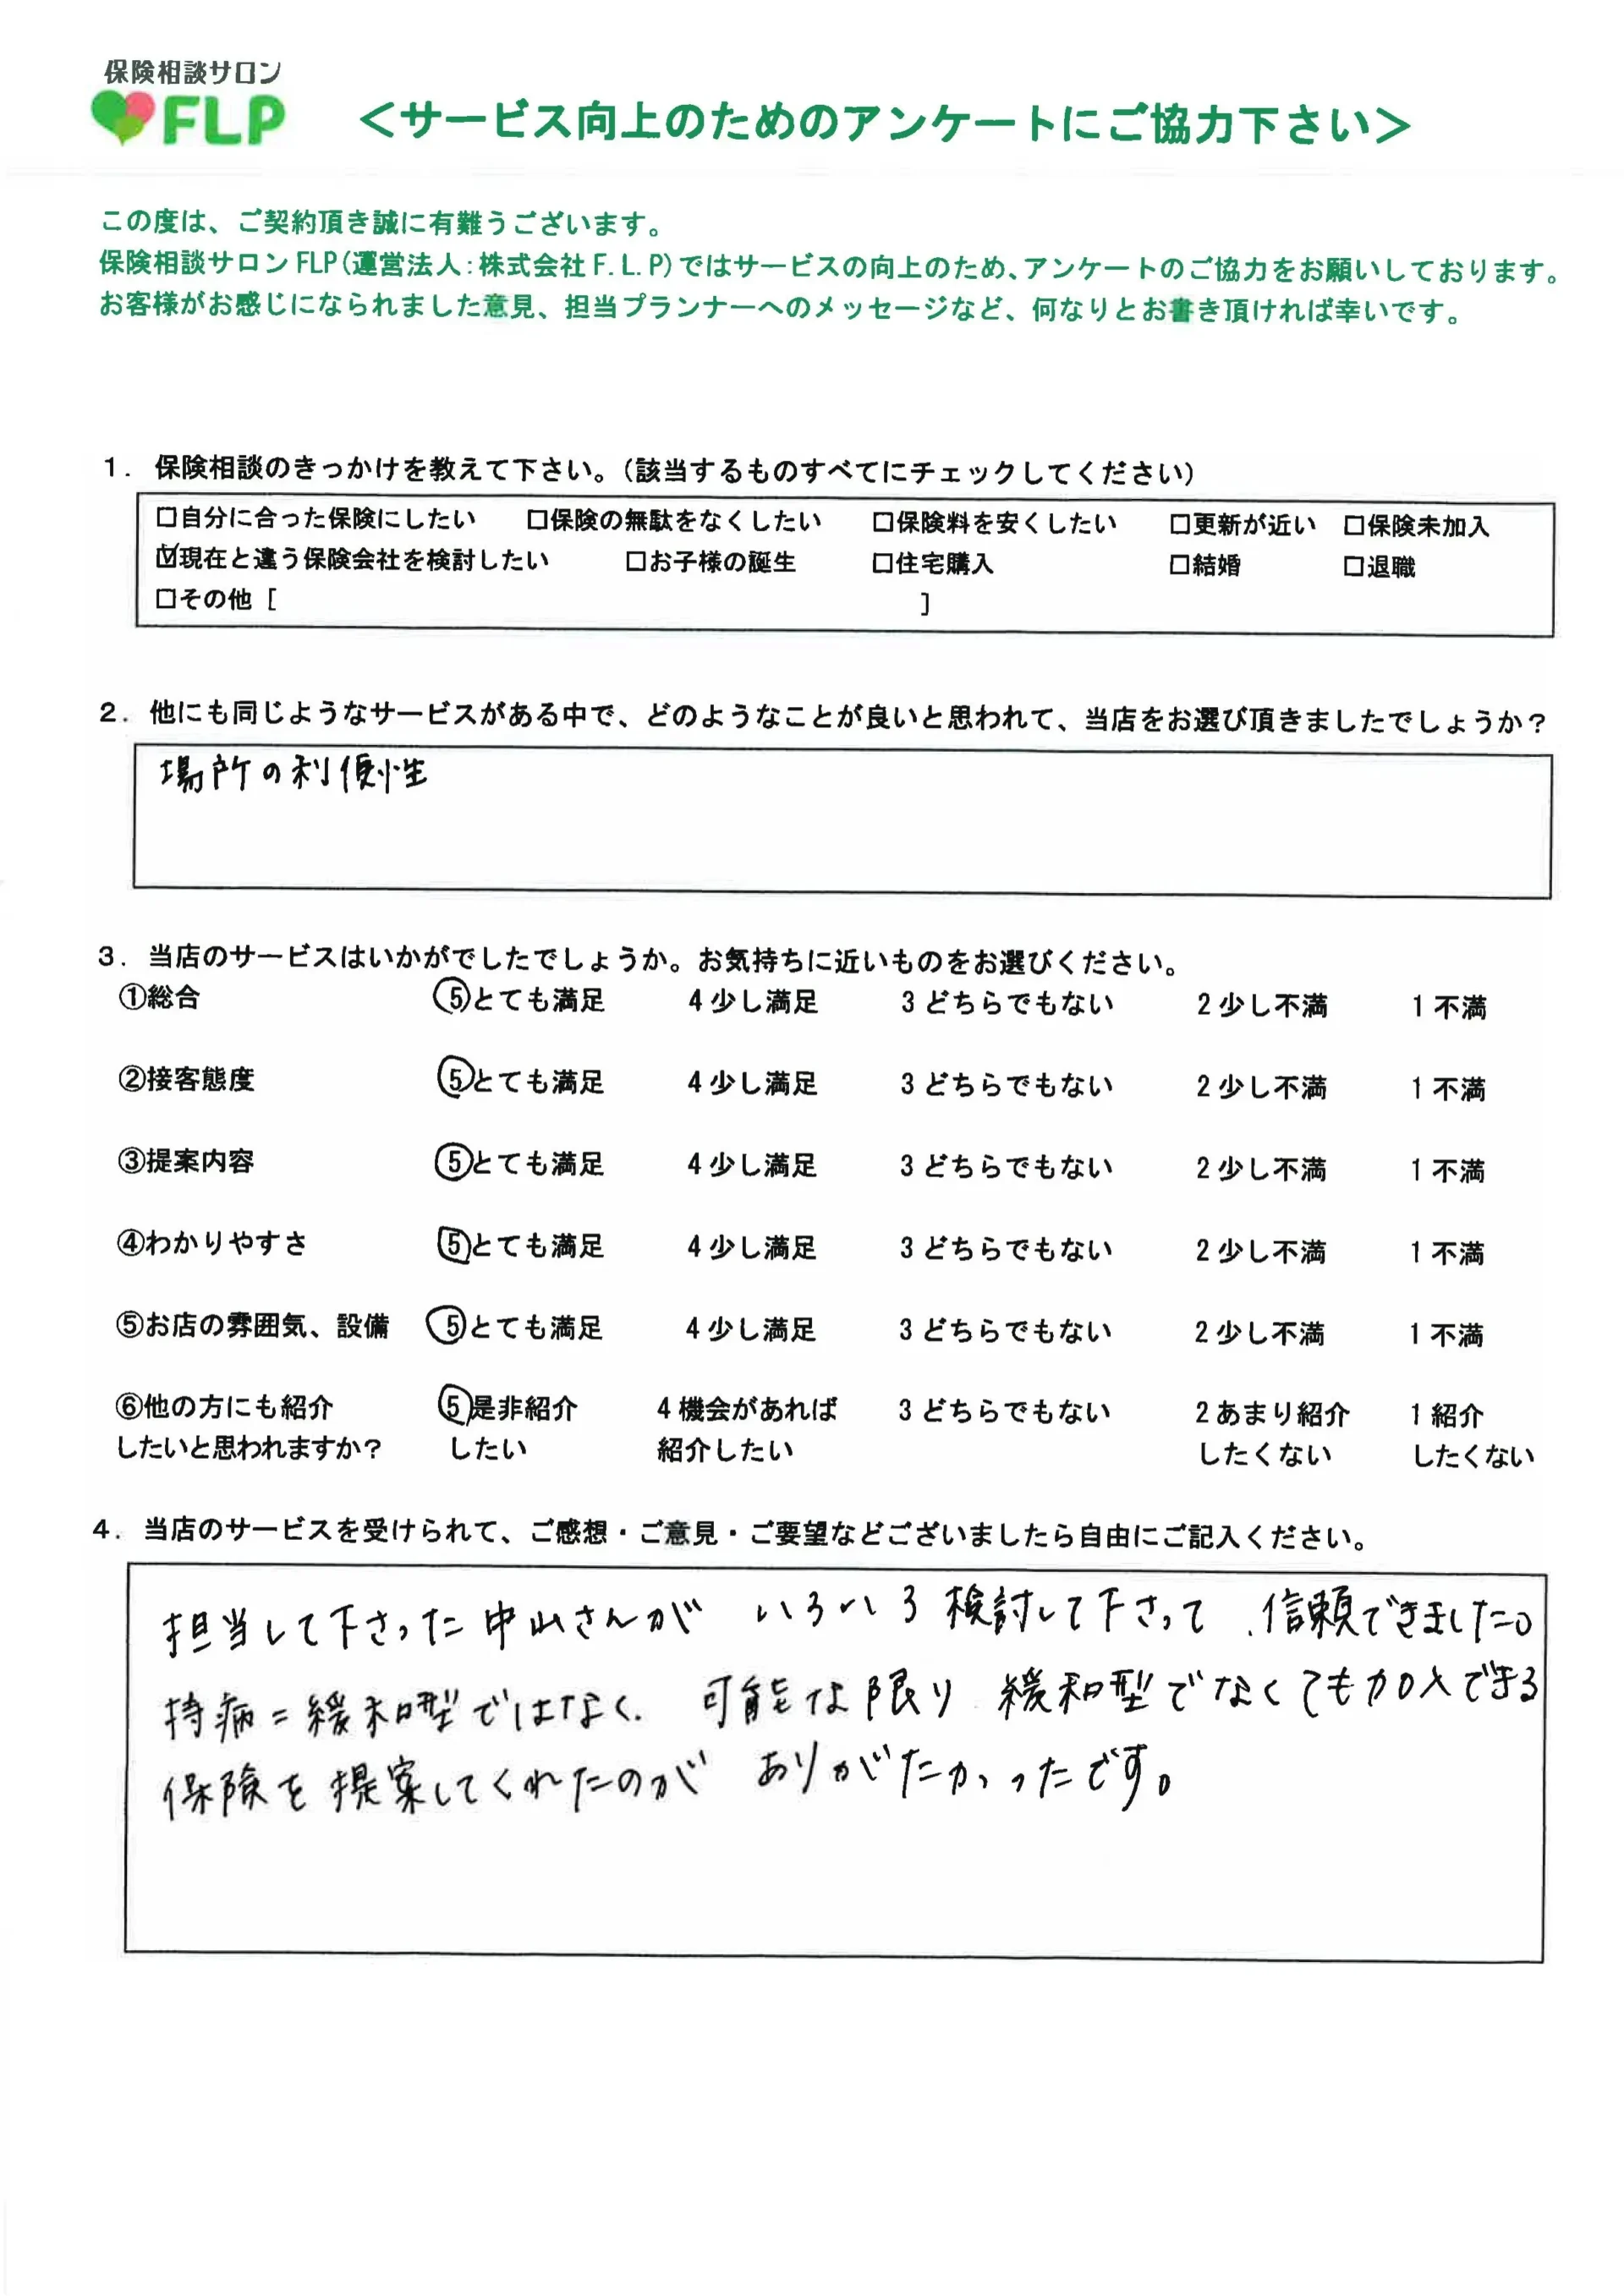 保険相談サロン
FLP
＜サービス向上のためのアンケートにご協力下さい＞
この度は、ご契約頂き誠に有難うございます。
保険相談サロンFLP(運営法人:株式会社F.L.P)ではサービスの向上のため、アンケートのご協力をお願いしております。
お客様がお感じになられました意見、担当プランナーへのメッセージなど、何なりとお書き頂ければ幸いです。
1. 保険相談のきっかけを教えて下さい。(該当するものすべてにチェックしてください)
□自分に合った保険にしたい □保険の無駄をなくしたい □保険料を安くしたい □更新が近い □保険未加入
☑現在と違う保険会社を検討したい □お子様の誕生 □住宅購入 □結婚 □退職
□その他 [ ]
2. 他にも同じようなサービスがある中で、どのようなことが良いと思われて、当店をお選び頂きましたでしょうか?
場所の利便性
3. 当店のサービスはいかがでしたでしょうか。お気持ちに近いものをお選びください。
①総合 ⑤とても満足 4 少し満足 3 どちらでもない 2 少し不満 1 不満
②接客態度 ⑤とても満足 4 少し満足 3 どちらでもない 2 少し不満 1 不満
③提案内容 ⑤とても満足 4 少し満足 3 どちらでもない 2 少し不満 1 不満
④わかりやすさ ⑤とても満足 4 少し満足 3 どちらでもない 2 少し不満 1 不満
⑤お店の雰囲気、設備 ⑤とても満足 4 少し満足 3 どちらでもない 2 少し不満 1 不満
⑥他の方にも紹介 ⑤是非紹介 4 機会があれば 3 どちらでもない 2 あまり紹介 1 紹介
したいと思われますか? したい 紹介したい したくない したくない
4. 当店のサービスを受けられて、ご感想・ご意見・ご要望などございましたら自由にご記入ください。
担当して下さった中山さんが いろいろ検討して下さって、信頼できました。
持病=緩和型ではなく、可能な限り 緩和型でなくても加入できる
保険を提案してくれたのが ありがたかったです。